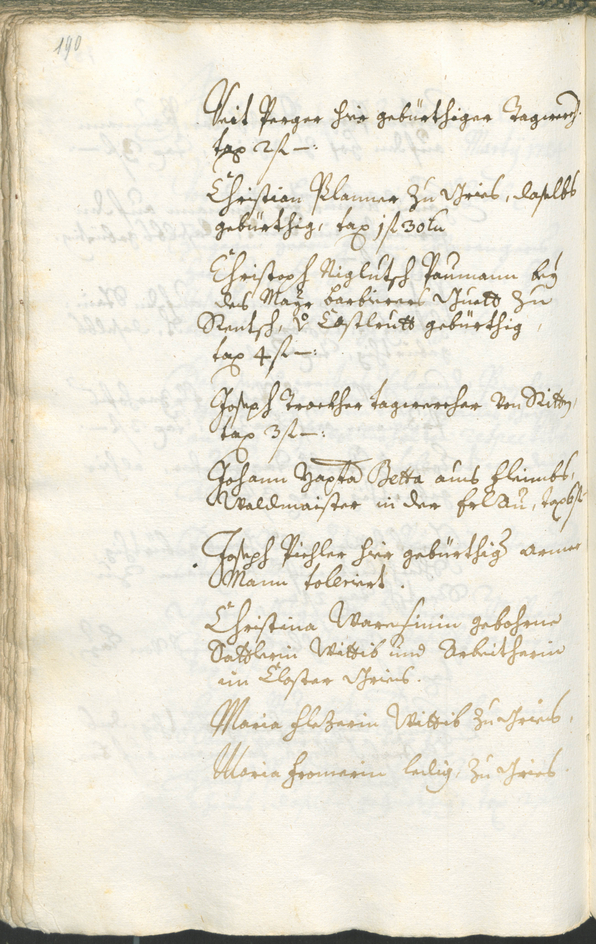 190
Veit Perger hie gebürthiger Tagwerch.
tax 2 f —:
Christian Planner zu Gries, daselbs
gebürthig, tax 1 f 30
Christoph Niglutsch Paumann bey
des Mayr Guett zu
Rentsch, v Castlrutt gebürthig,
tax 4 f —:
Joseph Trockher tagwercher von Ritten,
tax 3 f —:
Johann Bapta Betta aus fleimbs,
Waldmaister in der Erlau, tax 6 f
Joseph Pichler hie gebürthig armer
Mann tolleriert.
Christina gebohrne
Sattlerin Wittib und Arbeitherin
im Closter Gries.
Maria Wittib zu Gries,
Maria Fromerin ledig, zu Gries.